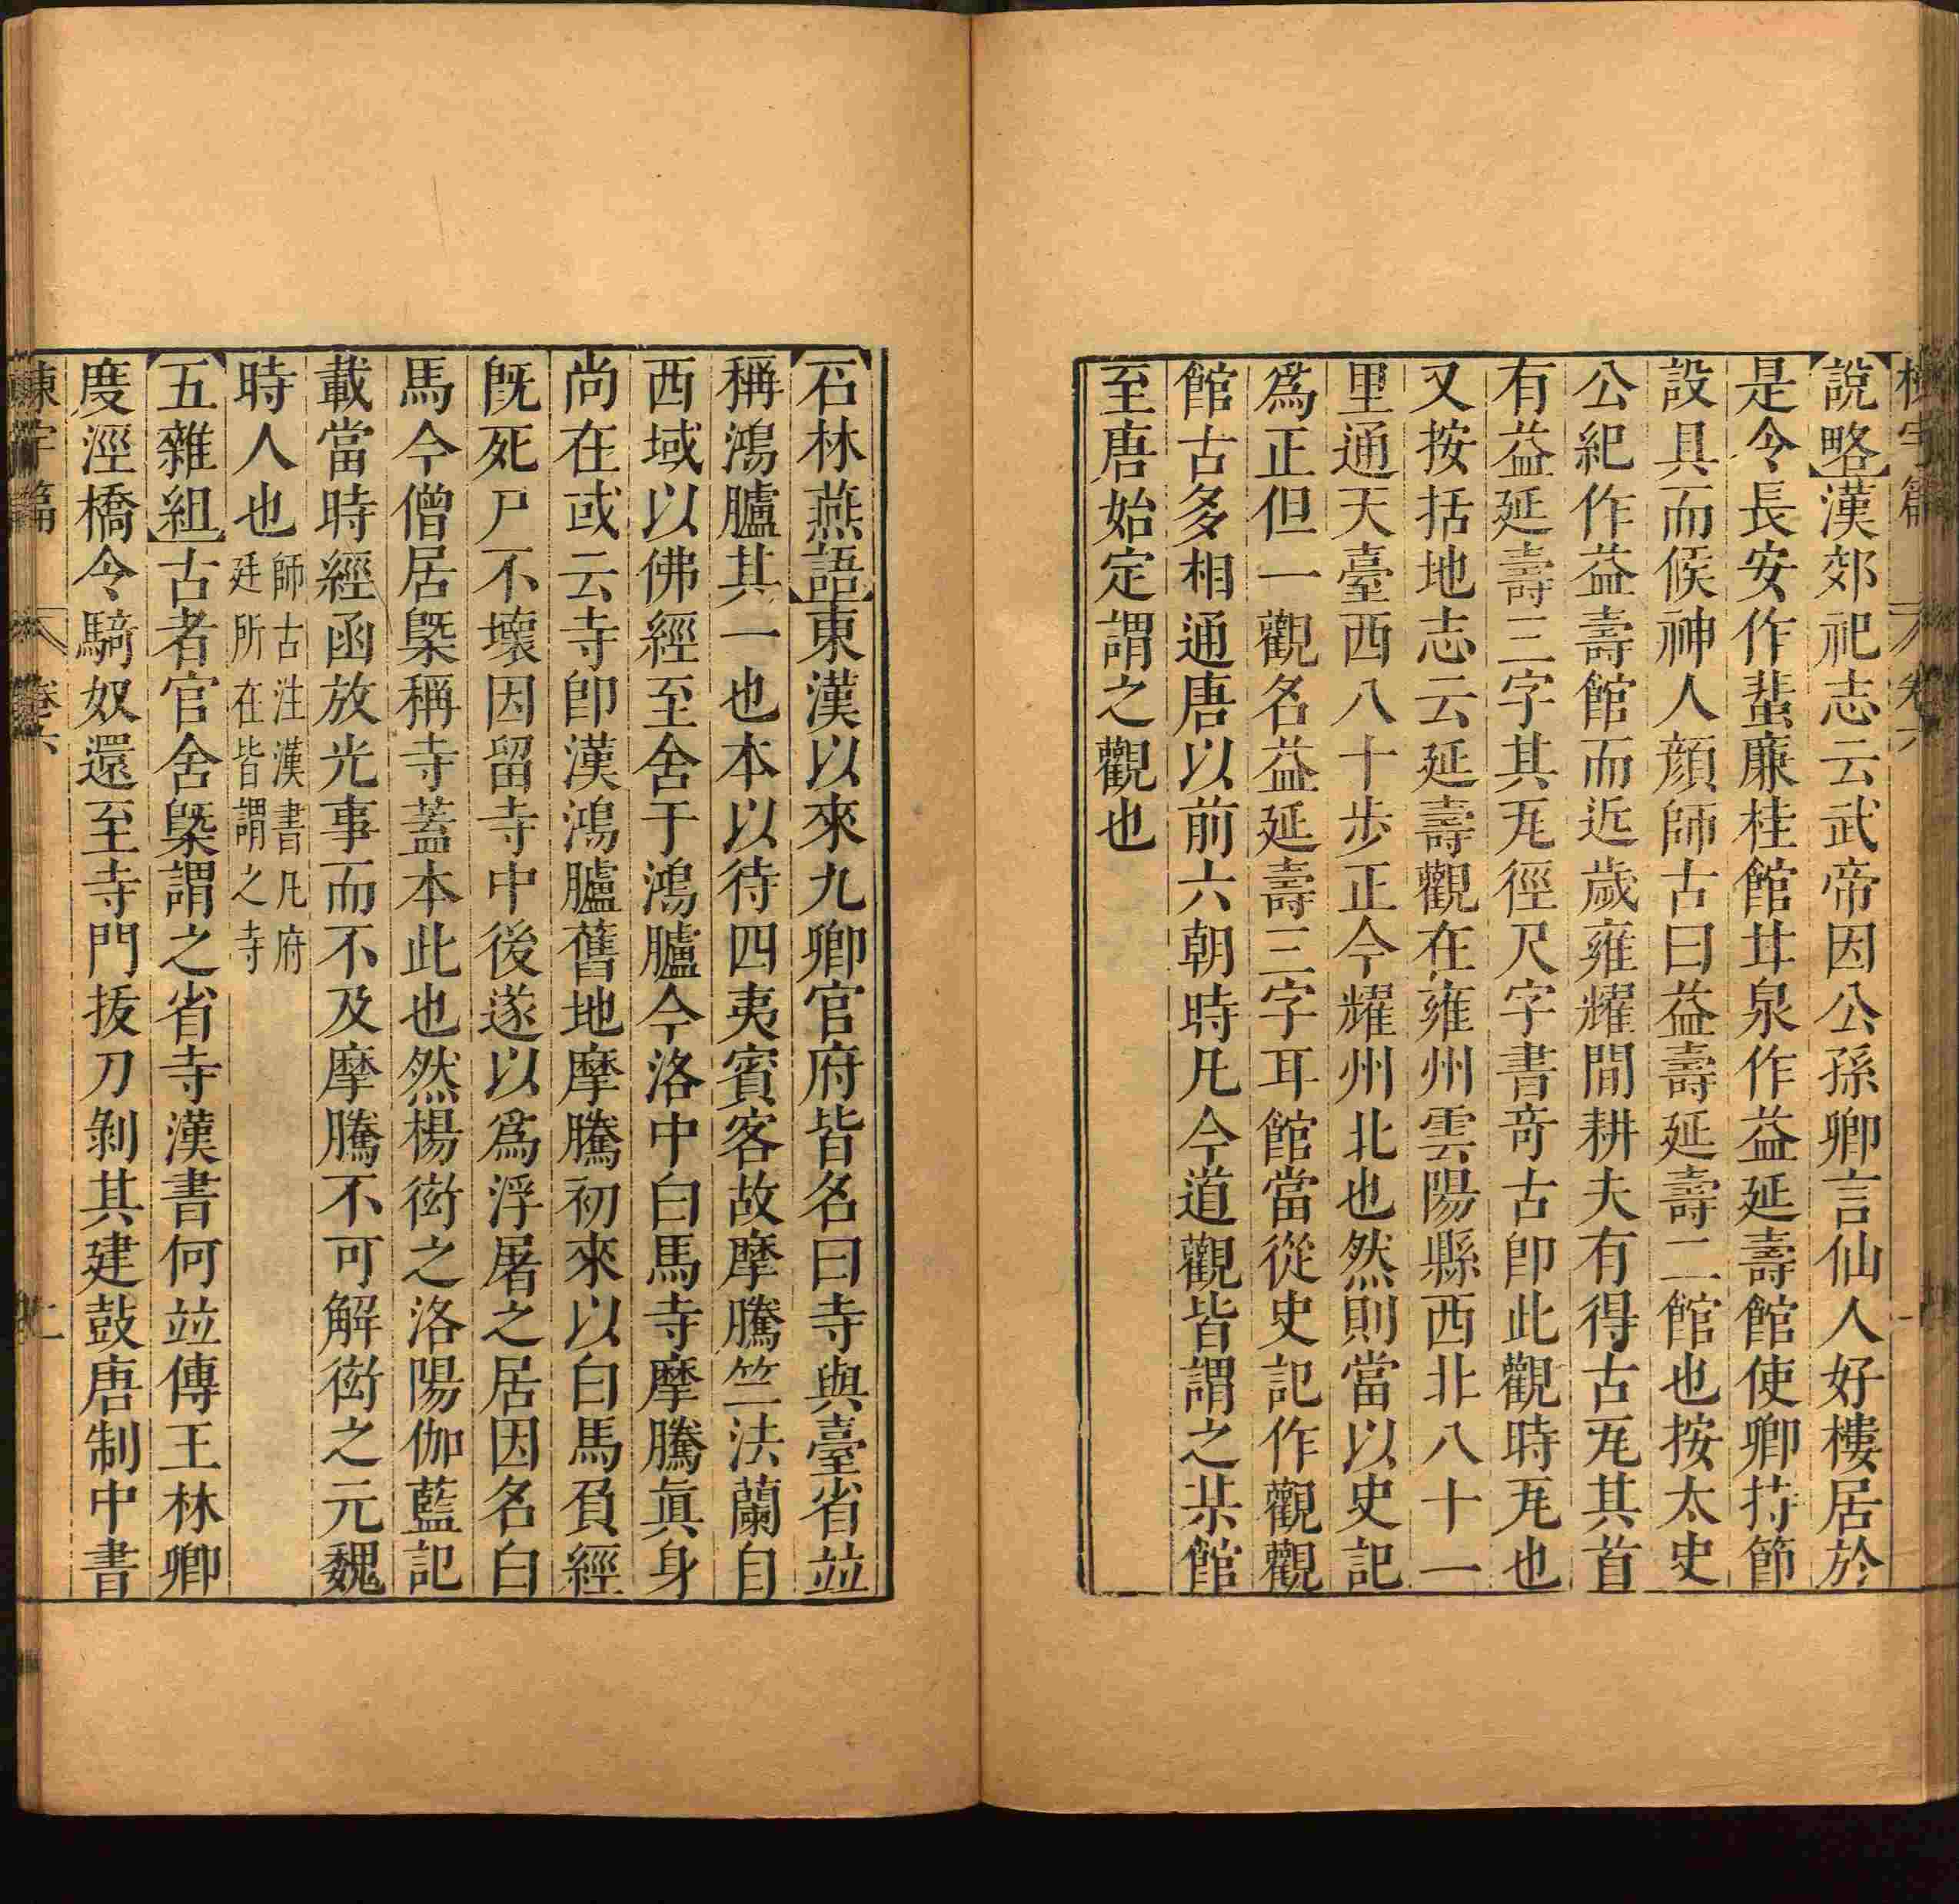 說略漢郊祀志云武帝因公孫卿言仙人好樓居於
是令長安作蜚廉桂館甘泉作益延壽館使卿持節
設具而候神人顔師古曰益壽延壽二館也按太史
公紀作益壽館而近歲雍耀閒耕夫有得古瓦其首
有益延壽三字其瓦徑尺字書奇古卽此觀時瓦也
又按括地志云延壽觀在雍州雲陽縣西北八十一
里通天臺西八十步正今耀州北也然則當以史記
爲正但一觀名益延壽三字耳館當從史記作觀觀
館古多相通唐以前六朝時凡今道觀皆謂之某館
至唐始定謂之觀也
石林燕語東漢以來九卿官府皆名曰寺與臺省並
稱鴻臚其一也本以待四夷賓客故摩騰竺法蘭自
西域以佛經至舍于鴻臚今洛中白馬寺摩騰眞身
尚在或云寺卽漢鴻臚舊地摩騰初來以白馬負經
旣死尸不壞因留寺中後遂以爲浮屠之居因名白
馬今僧居槩稱寺蓋本此也然楊衒之洛陽伽藍記
載當時經函放光事而不及摩騰不可解衒之元魏
時人也師古注漢書凡府
廷所在皆謂之寺
五雜組古者官舍槩謂之省寺漢書何並傳王林卿
度涇橋令騎奴還至寺門拔刀剝其建鼓唐制中書